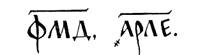 ФМ҃Д, ҂АРЛ҃Е.